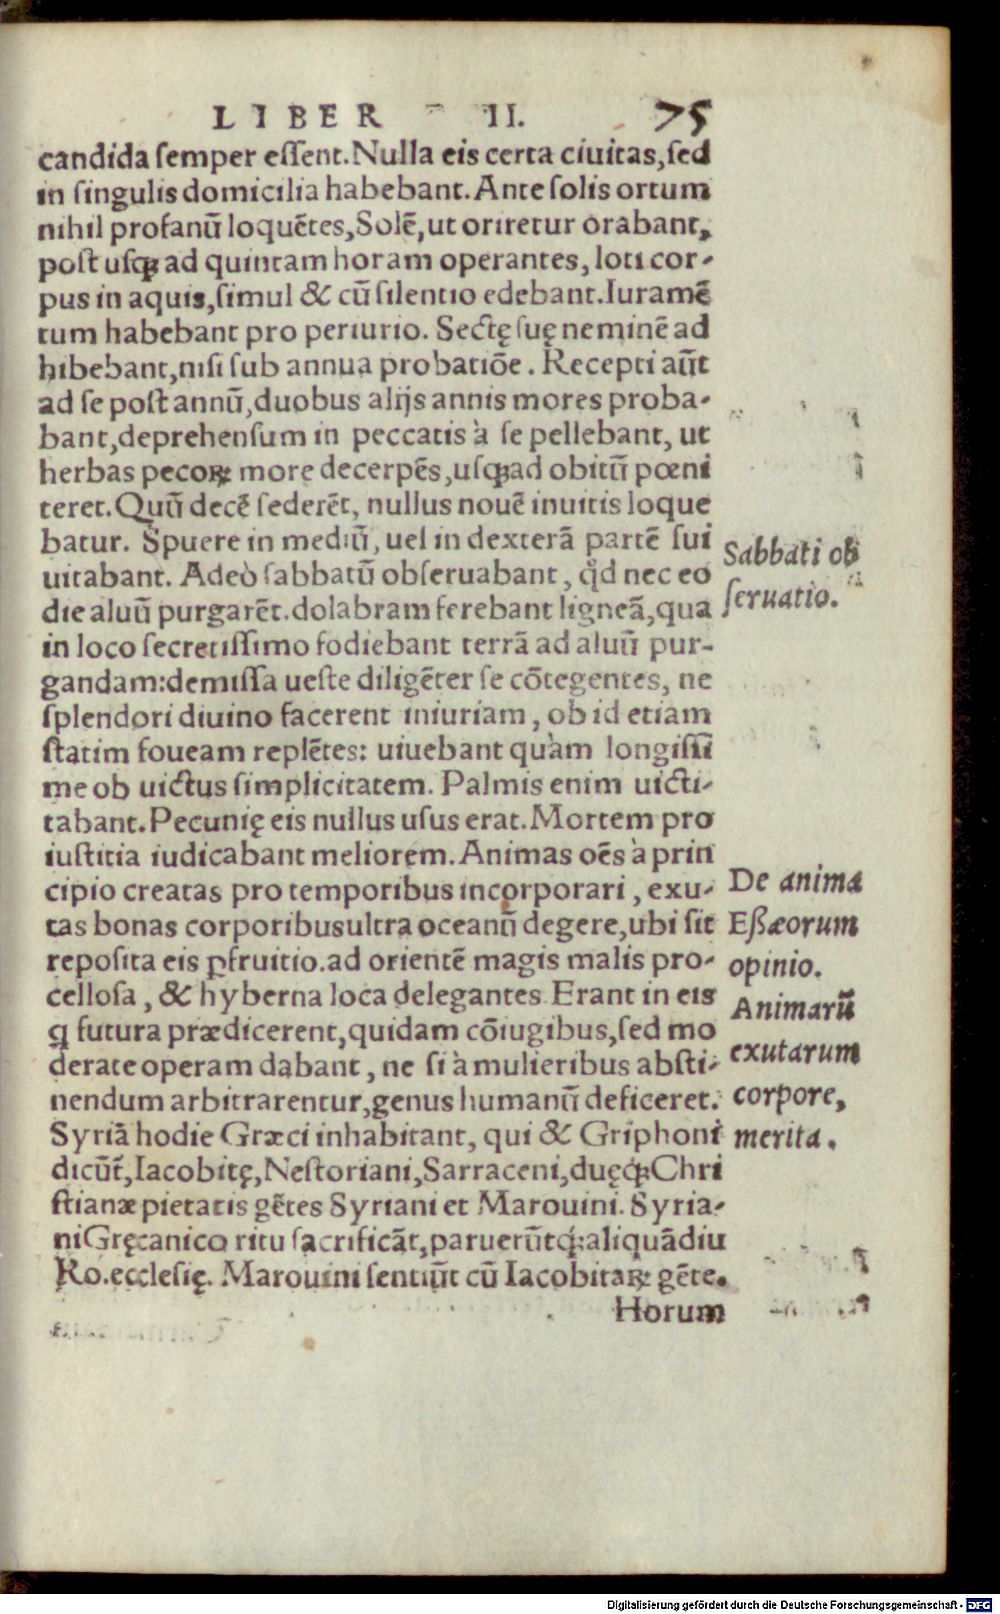 LIBER II. 75
candida ſemper eſſent. Nulla eis certa ciuitas, ſed
in ſingulis domicilia habebant. Ante ſolis ortum
nihil profanũ loquẽtes, Solẽ, ut oriretur orabant,
poſt uſqꝫ ad quintam horam operantes, loti cor-
pus in aquis, ſimul & cũ ſilentio edebant. Iuramẽ
tum habebant pro periurio. Sectę ſuę neminẽ ad
hibebant, niſi ſub annua probatiõe. Recepti aũt
ad ſe poſt annũ, duobus alijs annis mores proba-
bant, deprehenſum in peccatis à ſe pellebant, ut
herbas pecoꝝ more decerpẽs, uſqꝫ ad obitũ pœni
teret. Quũ decẽ ſederẽt, nullus nouẽ inuitis loque
batur. Spuere in mediũ, uel in dexterã partẽ ſui
uitabant. Adeò ſabbatũ obſeruabant, qd̓ nec eo
die aluũ purgarẽt. dolabram ferebant ligneã, qua
in loco ſecretiſſimo fodiebant terrã ad aluũ pur-
gandam: demiſſa ueſte diligẽter ſe cõtegentes, ne
ſplendori diuino facerent iniuriam, ob id etiam
ſtatim foueam replẽtes: uiuebant quàm longiſſi
me ob uictus ſimplicitatem. Palmis enim uicti-
tabant. Pecunię eis nullus uſus erat. Mortem pro
iuſtitia iudicabant meliorem. Animas oẽs à prin
cipio creatas pro temporibus incorporari, exu-
tas bonas corporibus ultra oceanũ degere, ubi ſit
repoſita eis ꝑfruitio. ad orientẽ magis malis pro-
celloſa, & hyberna loca delegantes Erant in eis
q̃ futura prædicerent, quidam cõiugibus, ſed mo
derate operam dabant, ne ſi à mulieribus abſti-
nendum arbitrarentur, genus humanũ deficeret.
Syriã hodie Græci inhabitant, qui & Griphoni
dicũt̃, Iacobitę, Neſtoriani, Sarraceni, duęqꝫ Chri
ſtianæ pietatis gẽtes Syriani et Marouini. Syria-
ni Gręcanico ritu ſacrificãt, paruerũtqꝫ aliquãdiu
Ro. eccleſię. Marouini ſentiũt cũ Iacobitaꝝ gẽte.
Horum
Sabbati ob
ſeruatio.
De anima
Eßæorum
opinio.
Animarũ
exutarum
corpore,
merita.
Digitalisierung gefördert durch die Deutsche Forschungsgemeinschaft - DFG